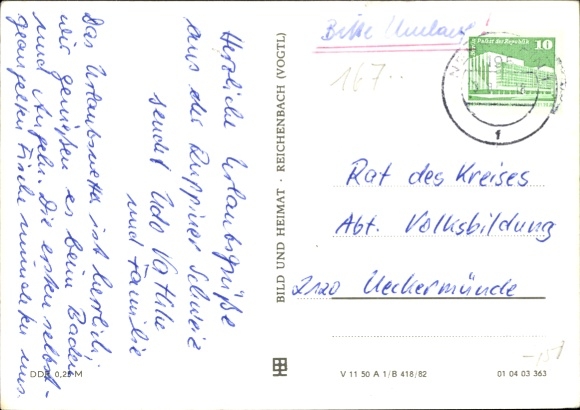 Herzliche Urlaubsgrüße
aus der Ruppiner Schweiz
sendet Udo
und Familie
Das Urlaubswetter ist herrlich
wir genießen es beim Baden
und Angeln. Die ersten selbst-
geangelten Fische munden uns.
DDR 0,25 M
BILD UND HEIMAT · REICHENBACH (VOGTL)
Bitte Umlauf!
167..
Palast der Republik
10
Rat des Kreises
Abt. Volksbildung
2120 Ueckermünde
V 11 50 A 1/B 418/82
01 04 03 363